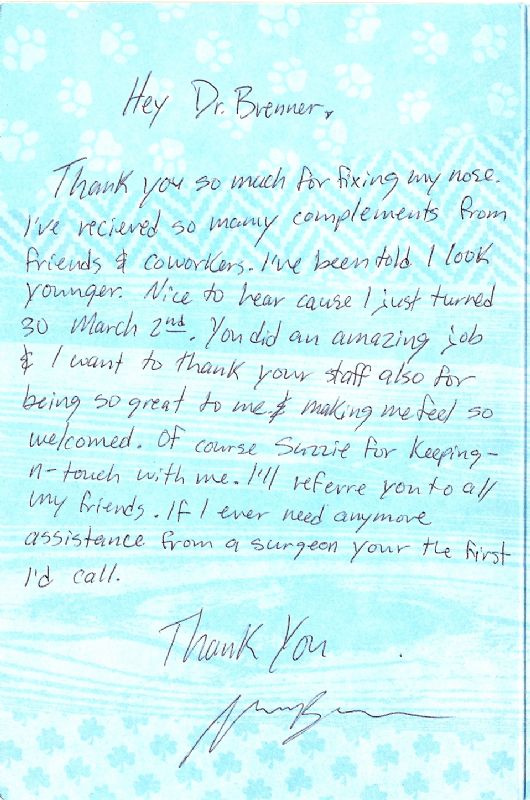 Hey Dr. Brenner,
Thank you so much for fixing my nose.
I've recieved so many complements from
friends & coworkers. I've been told I look
younger. Nice to hear cause I just turned
30 March 2nd. You did an amazing job
& I want to thank your staff also for
being so great to me & making me feel so
welcomed. Of course Suzzie for keeping-
n-touch with me. I'll referre you to all
my friends. If I ever need anymore
assistance from a surgeon your the first
I'd call.
Thank You